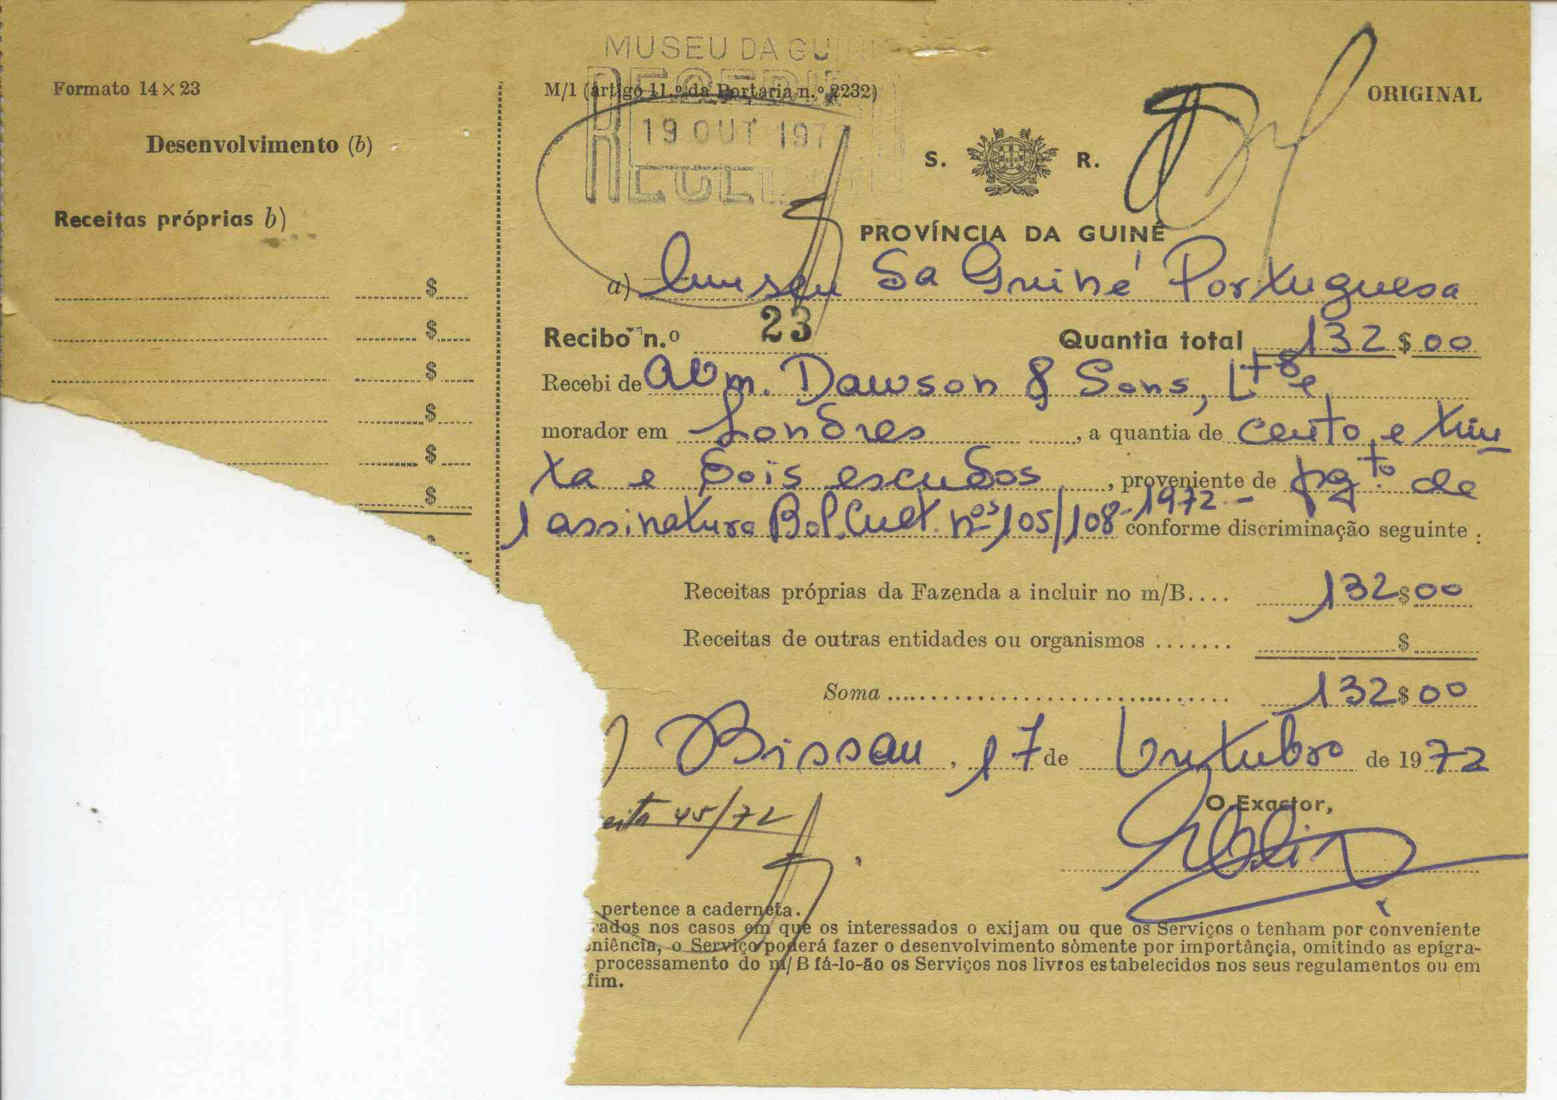 Formato 14 × 23
Desenvolvimento (b)
Receitas próprias b)
$
$
$
$
$
$
MUSEU DA GUI
19 OUT 197
M/1 (artigo 11.º da Portaria n.º 2232)
ORIGINAL
S. R.
PROVÍNCIA DA GUINÉ
a) Museu da Guiné Portuguesa
Recibo n.º 23 Quantia total 132$00
Recebi de Wm. Dawson & Sons, Ltd e
morador em Londres, a quantia de cento e trin
ta e dois escudos, proveniente de pgto de
1 assinatura Bol. Cult. nos 105/108-1972 - conforme discriminação seguinte:
Receitas próprias da Fazenda a incluir no m/B.... 132$00
Receitas de outras entidades ou organismos ....... $
Soma ........................................ 132$00
) Bissau, 17 de Outubro de 1972
O Exactor,
eita 45/72
pertence a caderneta.
ados nos casos em que os interessados o exijam ou que os Serviços o tenham por conveniente
niência, o Serviço poderá fazer o desenvolvimento sòmente por importância, omitindo as epigra-
processamento do m/B fá-lo-ão os Serviços nos livros estabelecidos nos seus regulamentos ou em
fim.